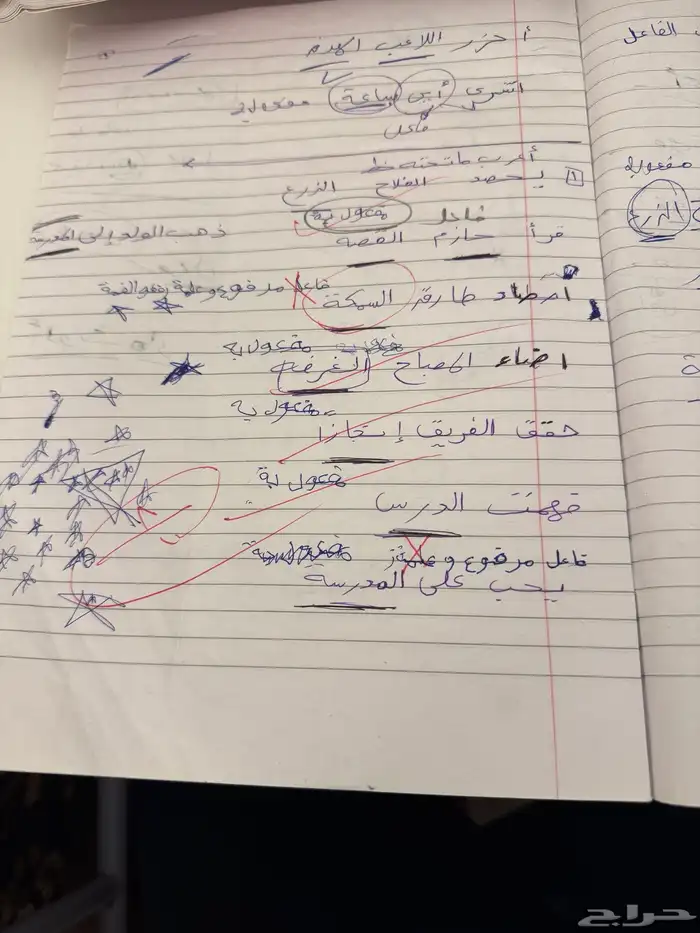 أحرز اللاعب الهدف
اشترى أبي ساعة مفعول به
فاعل
أعرب ما تحته خط
1 يحصد الفلاح الزرع
فاعل مفعول به
قرأ حازم القصة ذهب الولد إلى المدرسة
فاعل مرفوع وعلامة رفعه الضمة
اصطاد طارق السمكة
مفعول به
اضاء المصباح الغرفة
مفعول به
حقق الفريق إنجازا
مفعول به
فهمت الدرسا
فاعل مرفوع وعلامة
يحب على المدرسة
الفاعل
مفعول به
الزرع
حراج